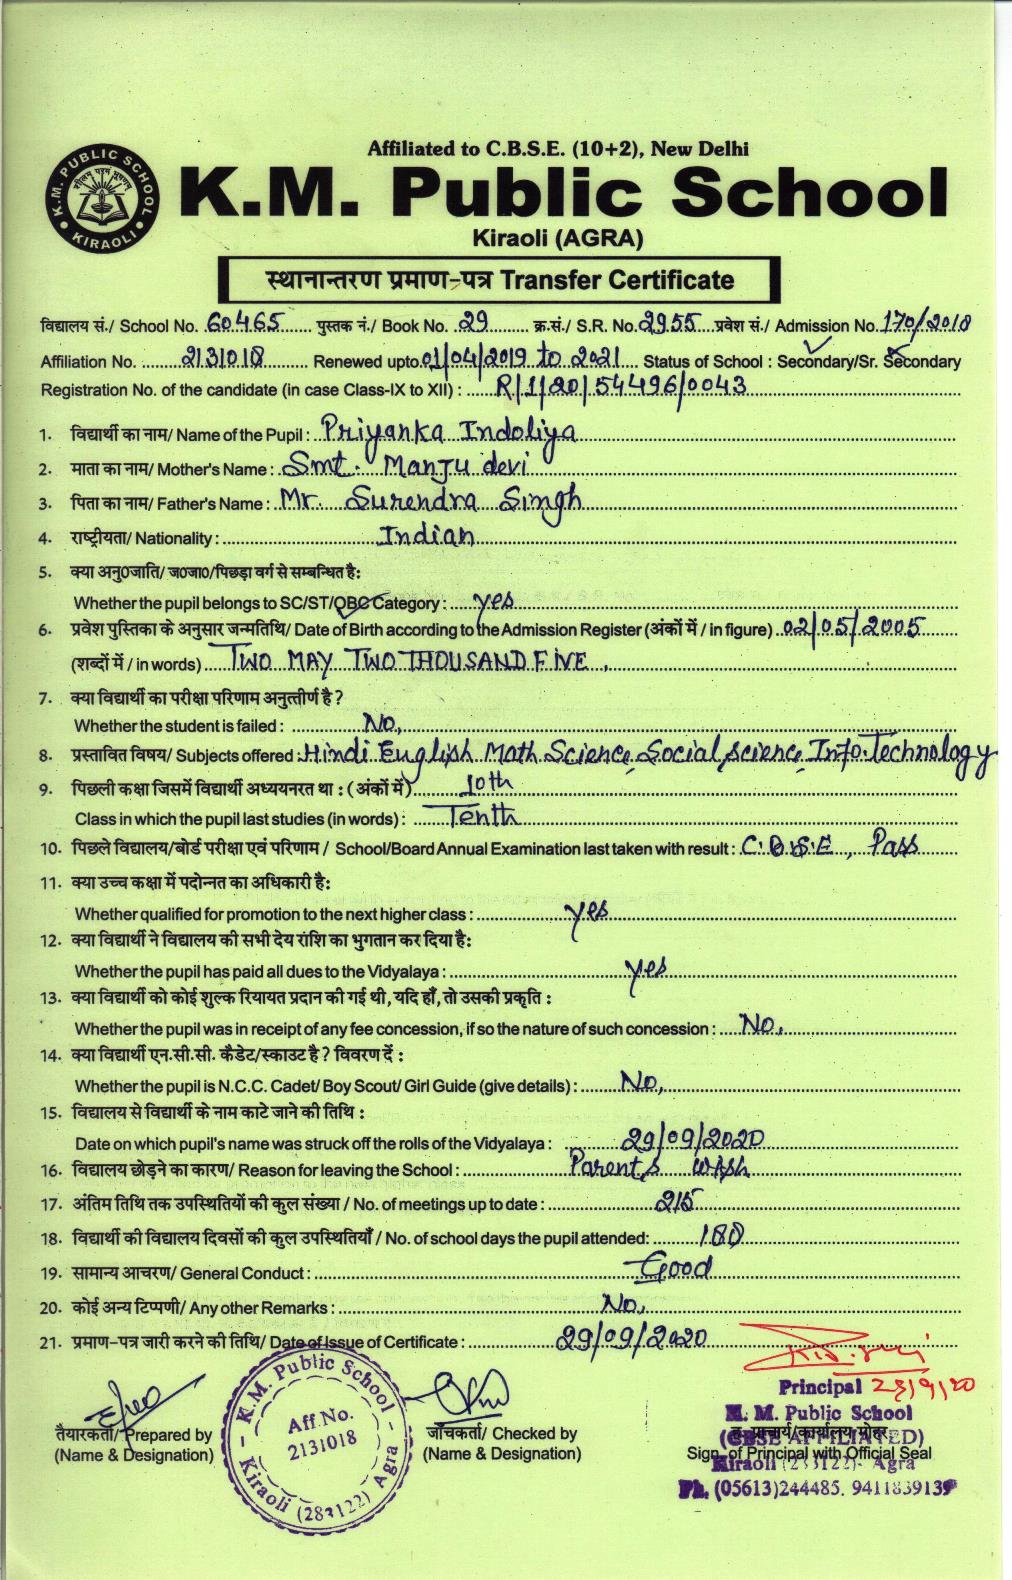 Affiliated to C.B.S.E. (10+2), New Delhi
K.M. PUBLIC SCHOOL
शीलम परम भूषणम
KIRAOLI
K.M. Public School
Kiraoli (AGRA)
स्थानान्तरण प्रमाण-पत्र Transfer Certificate
विद्यालय सं./ School No. 60465 पुस्तक नं./ Book No. 29 क्र.सं./ S.R. No. 2955 प्रवेश सं./ Admission No. 170/2018
Affiliation No. 2131018 Renewed upto 01/04/2019 to 2021 Status of School : Secondary/Sr. Secondary
Registration No. of the candidate (in case Class-IX to XII) : R/1/20/54496/0043
1. विद्यार्थी का नाम/ Name of the Pupil : Priyanka Indoliya
2. माता का नाम/ Mother's Name : Smt. Manju devi
3. पिता का नाम/ Father's Name : Mr. Surendra Singh
4. राष्ट्रीयता/ Nationality : Indian
5. क्या अनु0जाति/ ज0जा0/पिछड़ा वर्ग से सम्बन्धित है:
Whether the pupil belongs to SC/ST/OBC Category : yes
6. प्रवेश पुस्तिका के अनुसार जन्मतिथि/ Date of Birth according to the Admission Register (अंकों में / in figure) 02/05/2005
(शब्दों में / in words) TWO MAY TWO THOUSAND FIVE.
7. क्या विद्यार्थी का परीक्षा परिणाम अनुत्तीर्ण है ?
Whether the student is failed : No,
8. प्रस्तावित विषय/ Subjects offered : Hindi English Math Science, Social science, Info. Technology
9. पिछली कक्षा जिसमें विद्यार्थी अध्ययनरत था : (अंकों में) 10th
Class in which the pupil last studies (in words) : Tenth
10. पिछले विद्यालय/बोर्ड परीक्षा एवं परिणाम / School/Board Annual Examination last taken with result : C.B.S.E, Pass
11. क्या उच्च कक्षा में पदोन्नत का अधिकारी है:
Whether qualified for promotion to the next higher class : yes
12. क्या विद्यार्थी ने विद्यालय की सभी देय राशि का भुगतान कर दिया है:
Whether the pupil has paid all dues to the Vidyalaya : yes
13. क्या विद्यार्थी को कोई शुल्क रियायत प्रदान की गई थी, यदि हाँ, तो उसकी प्रकृति :
Whether the pupil was in receipt of any fee concession, if so the nature of such concession : No,
14. क्या विद्यार्थी एन.सी.सी. कैडेट/स्काउट है ? विवरण दें :
Whether the pupil is N.C.C. Cadet/ Boy Scout/ Girl Guide (give details) : No,
15. विद्यालय से विद्यार्थी के नाम काटे जाने की तिथि :
Date on which pupil's name was struck off the rolls of the Vidyalaya : 29/09/2020
16. विद्यालय छोड़ने का कारण/ Reason for leaving the School : Parent,s wish
17. अंतिम तिथि तक उपस्थितियों की कुल संख्या / No. of meetings up to date : 215
18. विद्यार्थी की विद्यालय दिवसों की कुल उपस्थितियाँ / No. of school days the pupil attended: 180
19. सामान्य आचरण/ General Conduct : Good
20. कोई अन्य टिप्पणी/ Any other Remarks : No,
21. प्रमाण-पत्र जारी करने की तिथि/ Date of Issue of Certificate : 29/09/2020
तैयारकर्ता/ Prepared by
(Name & Designation)
K.M. Public School
Aff.No.
2131018
Kiraoli (283122) Agra
जाँचकर्ता/ Checked by
(Name & Designation)
Principal
K. M. Public School
(CBSE AFFILIATED)
ह. प्राचार्य/कार्यालय मोहर
Sign. of Principal with Official Seal
Kiraoli (283122)- Agra
Ph. (05613)244485. 9411839139